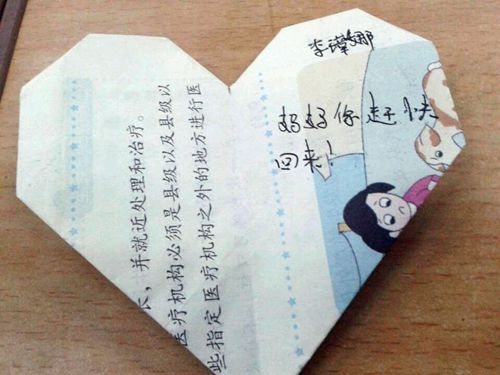 妈妈你赶快
回来!
长，并就近处理和治疗。
医疗机构必须是县级以及县级以
些指定医疗机构之外的地方进行医